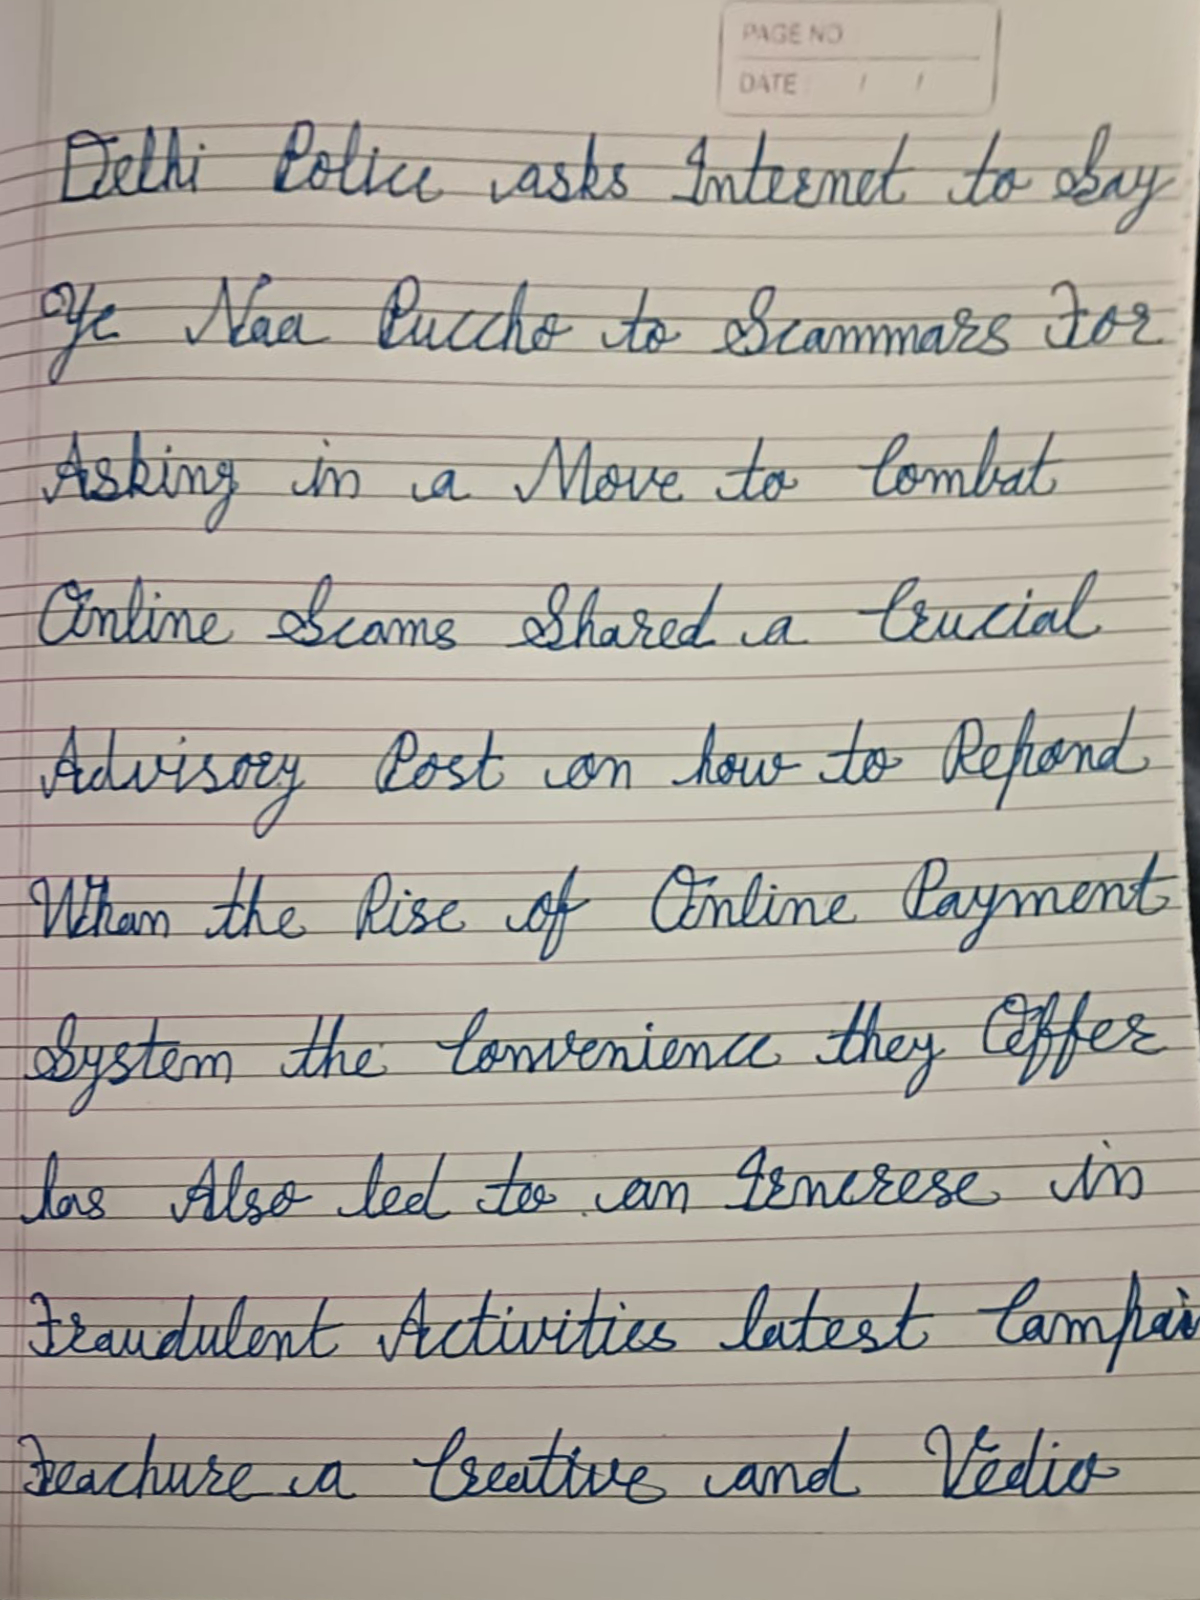 PAGE NO
DATE / /
Delhi Police asks Internet to Say
Ye Naa Puccho to Scammars For
Asking in a Move to Combat
Online Scams Shared a Crucial
Advisory Post on how to Repond
Whan the Rise of Online Payment
System the Convenience they Offer
has Also led to an Increse in
Fraudulent Activities latest Campai
Feachure a Creative and Vedio